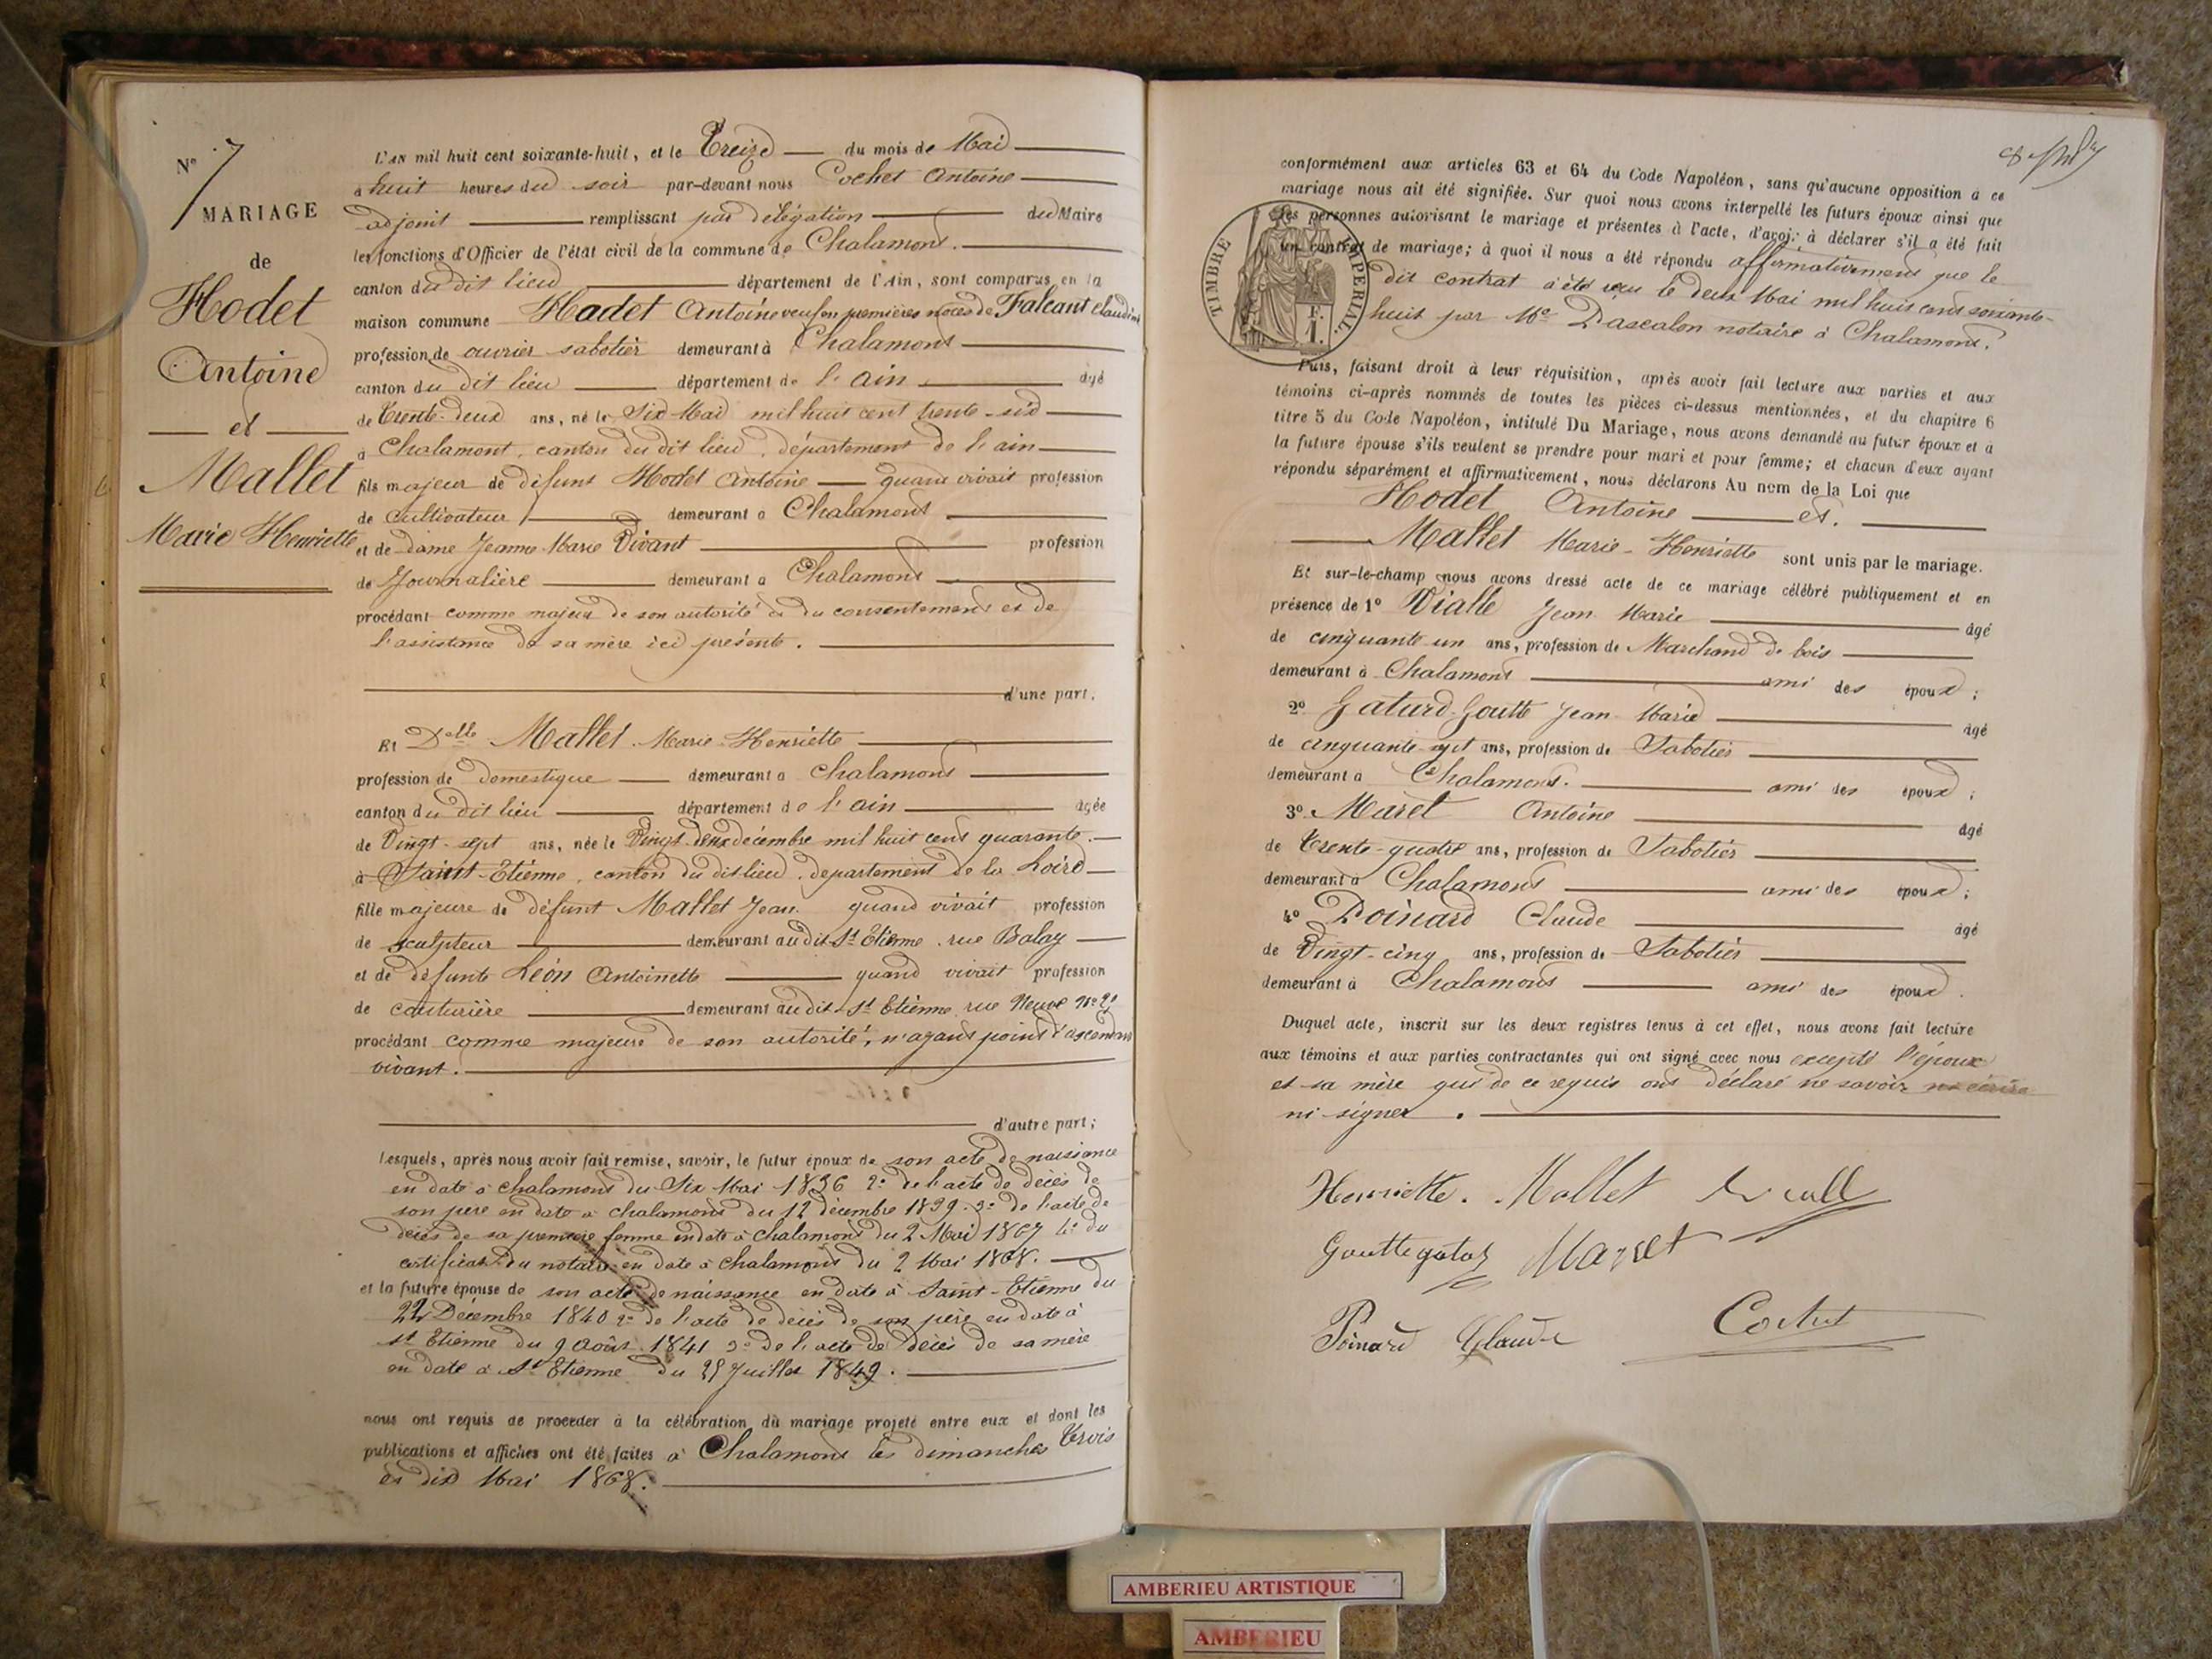 N° 7
MARIAGE
de
Hodet
Antoine
et
Mallet
Marie Henriette
L'AN mil huit cent soixante-huit, et le Treize du mois de Mai
à huit heures du soir par-devant nous Cochet Antoine
adjoint remplissant par délégation du Maire
les fonctions d'Officier de l'état civil de la commune de Chalamont.
canton du dit lieu département de l'Ain, sont comparus en la
maison commune Hodet Antoine veuf en premières noces de Falcant Claudine
profession de ouvrier sabotier demeurant à Chalamont
canton du dit lieu département de l'ain âgé
de Trente-deux ans, né le Six Mai mil huit cent trente-six
à Chalamont, canton du dit lieu, département de l'ain
fils majeur de défunt Hodet Antoine quand vivait profession
de Cultivateur demeurant à Chalamont
et de dame Jeanne Marie Vivant profession
de Journalière demeurant à Chalamont
procédant comme majeur de son autorité et du consentement et de
l'assistance de sa mère ici présente.
d'une part,
Et Delle Mallet Marie-Henriette
profession de domestique demeurant à Chalamont
canton du dit lieu département de l'ain âgée
de Vingt-sept ans, née le Vingt-deux décembre mil huit cent quarante
à Saint-Etienne, canton du dit lieu, département de la Loire
fille majeure de défunt Mallet Jean quand vivait profession
de sculpteur demeurant au dit St Etienne, rue Balay
et de défunte Léon Antoinette quand vivait profession
de couturière demeurant au dit St Etienne, rue Neuve N°
procédant comme majeure de son autorité, n'ayant point d'ascendant
vivant.
d'autre part;
Lesquels, après nous avoir fait remise, savoir, le futur époux de son acte de naissance
en date à Chalamont du Six Mai 1836 2° de l'acte de décès de
son père en date à Chalamont du 12 décembre 1839 3° de l'acte de
décès de sa première femme en date à Chalamont du 2 Mai 1867 4° du
certificat du notaire en date à Chalamont du 2 Mai 1868.
et la future épouse de son acte de naissance en date à Saint-Etienne du
22 Décembre 1840 2° de l'acte de décès de son père en date à
St Etienne du 9 Août 1841 3° de l'acte de décès de sa mère
en date à St Etienne du Juillet 1849.
nous ont requis de procéder à la célébration du mariage projeté entre eux et dont les
publications et affiches ont été faites à Chalamont les dimanches trois
et dix Mai 1868.
conformément aux articles 63 et 64 du Code Napoléon, sans qu'aucune opposition à ce
mariage nous ait été signifiée. Sur quoi nous avons interpellé les futurs époux ainsi que
les personnes autorisant le mariage et présentes à l'acte, d'avoir à déclarer s'il a été fait
un contrat de mariage; à quoi il nous a été répondu affirmativement que le
dit contrat a été reçu le deux Mai mil huit cent soixante-
huit par Me Dascalon notaire à Chalamont.
TIMBRE IMPERIAL
F.
1.
Puis, faisant droit à leur réquisition, après avoir fait lecture aux parties et aux
témoins ci-après nommés de toutes les pièces ci-dessus mentionnées, et du chapitre 6
titre 5 du Code Napoléon, intitulé Du Mariage, nous avons demandé au futur époux et à
la future épouse s'ils veulent se prendre pour mari et pour femme; et chacun d'eux ayant
répondu séparément et affirmativement, nous déclarons Au nom de la Loi que
Hodet Antoine et.
Mallet Marie-Henriette sont unis par le mariage.
Et sur-le-champ nous avons dressé acte de ce mariage célébré publiquement et en
présence de 1° Vialle Jean Marie âgé
de cinquante un ans, profession de Marchand de bois
demeurant à Chalamont ami des époux;
2° Gaturd-Goutte Jean Marie âgé
de cinquante-sept ans, profession de Sabotier
demeurant à Chalamont. ami des époux;
3° Maret Antoine âgé
de Trente-quatre ans, profession de Sabotier
demeurant à Chalamont ami des époux;
4° Poinard Claude âgé
de Vingt-cinq ans, profession de Sabotier
demeurant à Chalamont ami des époux.
Duquel acte, inscrit sur les deux registres tenus à cet effet, nous avons fait lecture
aux témoins et aux parties contractantes qui ont signé avec nous excepté l'époux
et sa mère qui de ce requis ont déclaré ne savoir ni écrire
ni signer.
Henriette. Mallet
Maret
Poinard Claude Cochet
AMBERIEU ARTISTIQUE
AMBERIEU